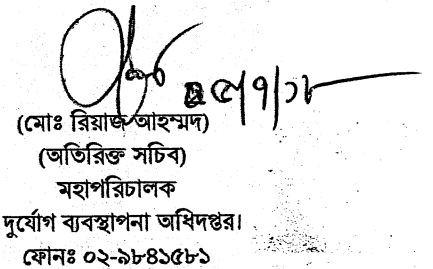 (মোঃ রিয়াজ আহম্মদ)
(অতিরিক্ত সচিব)
মহাপরিচালক
দুর্যোগ ব্যবস্থাপনা অধিদপ্তর।
ফোনঃ ০২-৯৮৪১৫৮১